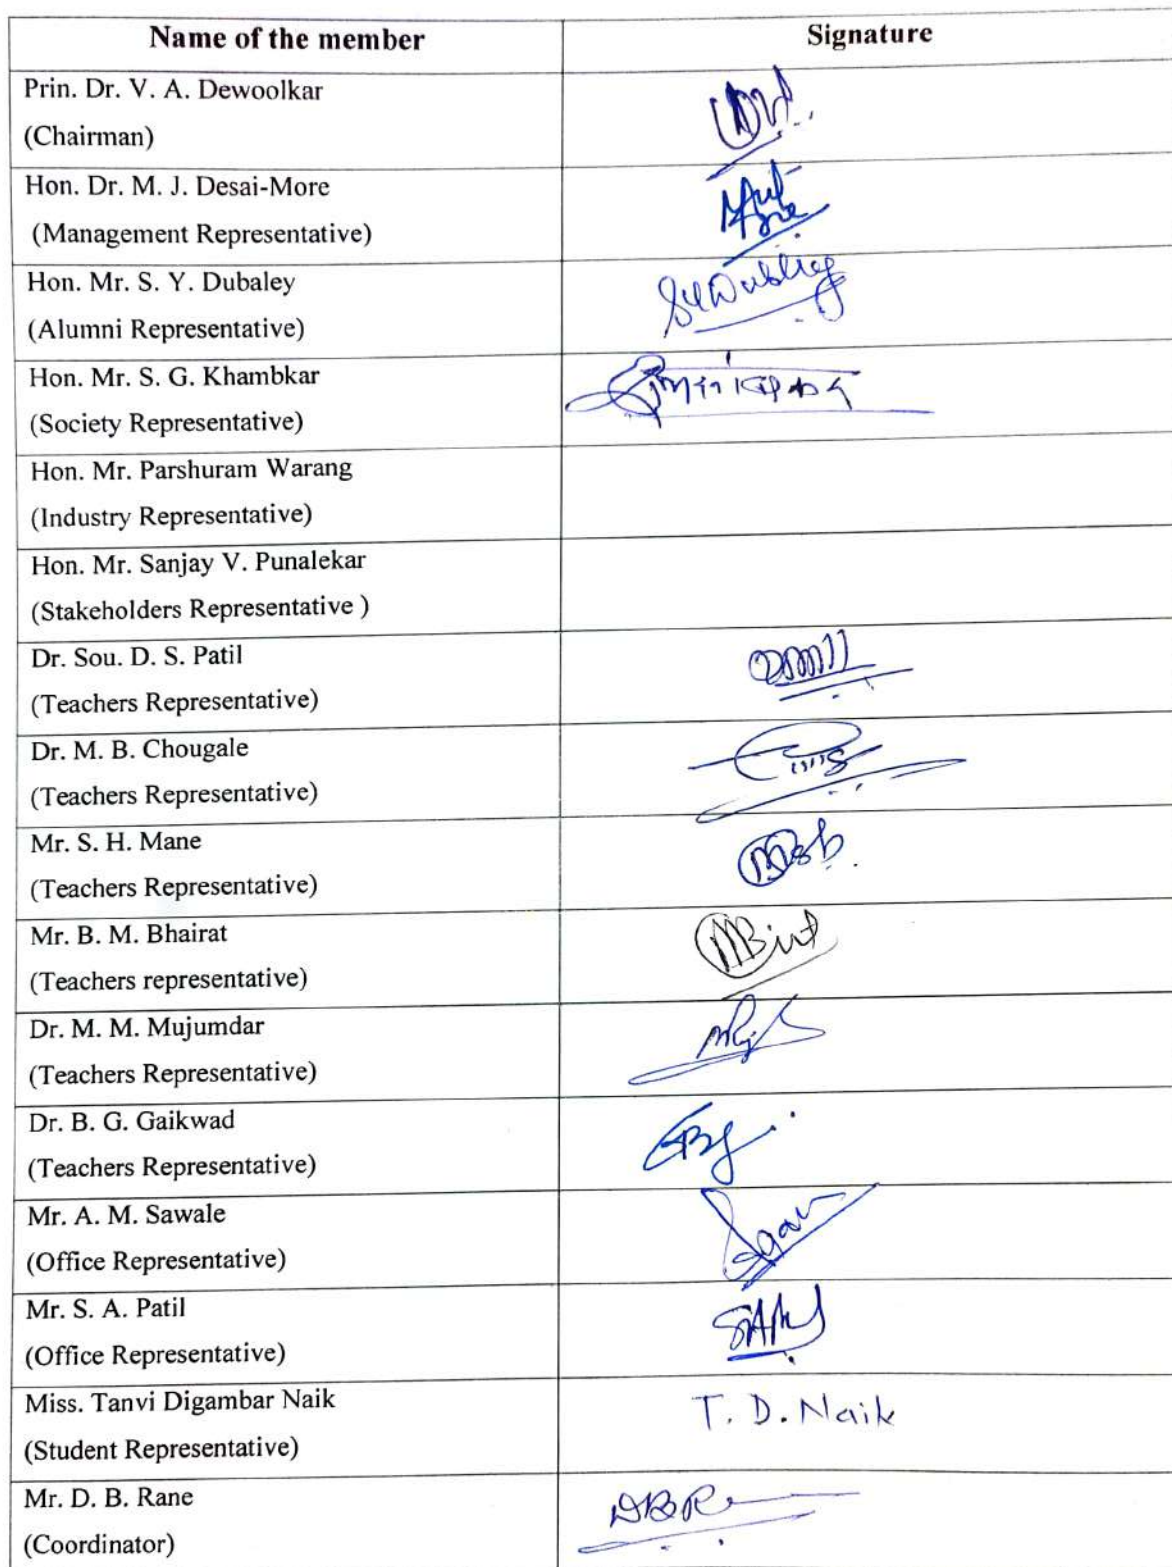 Name of the member
Signature
Prin. Dr. V. A. Dewoolkar
(Chairman)
Hon. Dr. M. J. Desai-More
(Management Representative)
Hon. Mr. S. Y. Dubaley
(Alumni Representative)
Hon. Mr. S. G. Khambkar
(Society Representative)
Hon. Mr. Parshuram Warang
(Industry Representative)
Hon. Mr. Sanjay V. Punalekar
(Stakeholders Representative )
Dr. Sou. D. S. Patil
(Teachers Representative)
Dr. M. B. Chougale
(Teachers Representative)
Mr. S. H. Mane
(Teachers Representative)
Mr. B. M. Bhairat
(Teachers representative)
Dr. M. M. Mujumdar
(Teachers Representative)
Dr. B. G. Gaikwad
(Teachers Representative)
Mr. A. M. Sawale
(Office Representative)
Mr. S. A. Patil
(Office Representative)
Miss. Tanvi Digambar Naik
T. D. Naik
(Student Representative)
Mr. D. B. Rane
(Coordinator)